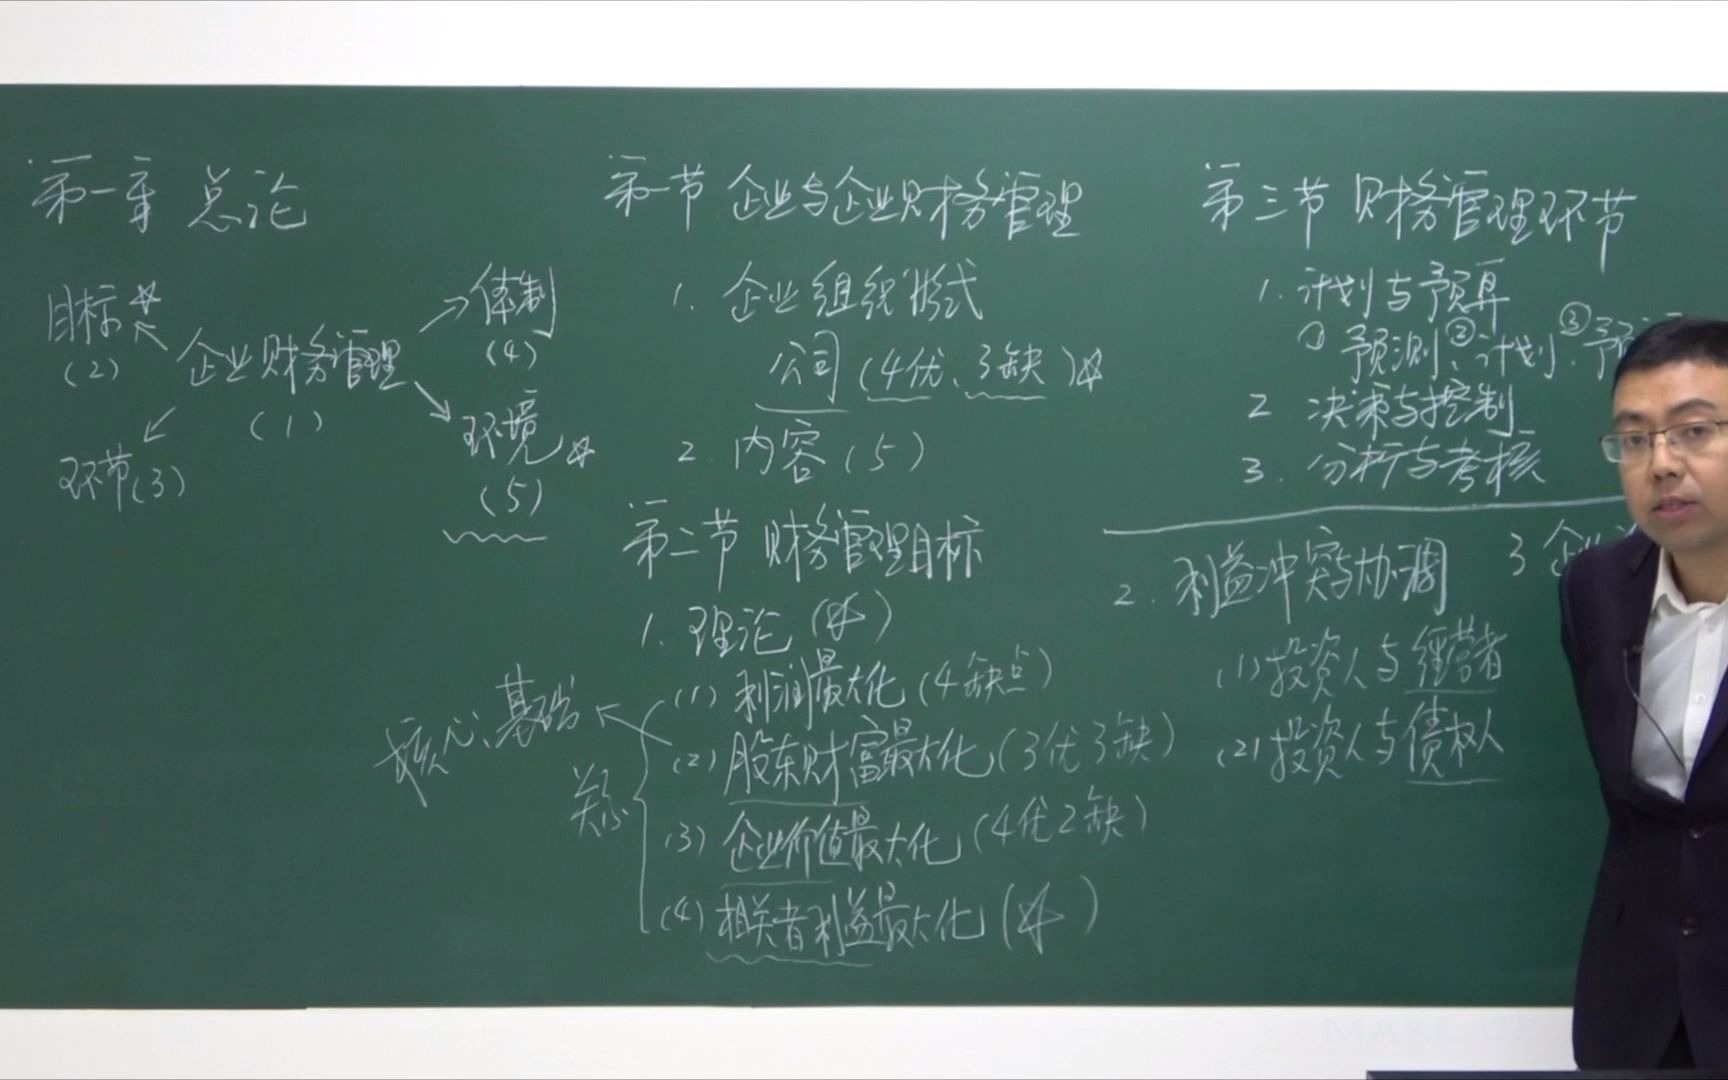 第一章 总论
目标☆
(2)
企业财务管理
(1)
体制
(4)
环节(3)
环境☆
(5)
第一节 企业与企业财务管理
1. 企业组织形式
公司(4优、3缺)☆
2. 内容(5)
第二节 财务管理目标
1. 理论(☆)
(1) 利润最大化(4缺点)
(2) 股东财富最大化(3优3缺)
(3) 企业价值最大化(4优2缺)
(4) 相关者利益最大化(☆)
核心、基础
关系
第三节 财务管理环节
1. 计划与预算
①预测、②计划、③预
2 决策与控制
3. 分析与考核
2. 利益冲突与协调
(1) 投资人与经营者
(2) 投资人与债权人
3 企